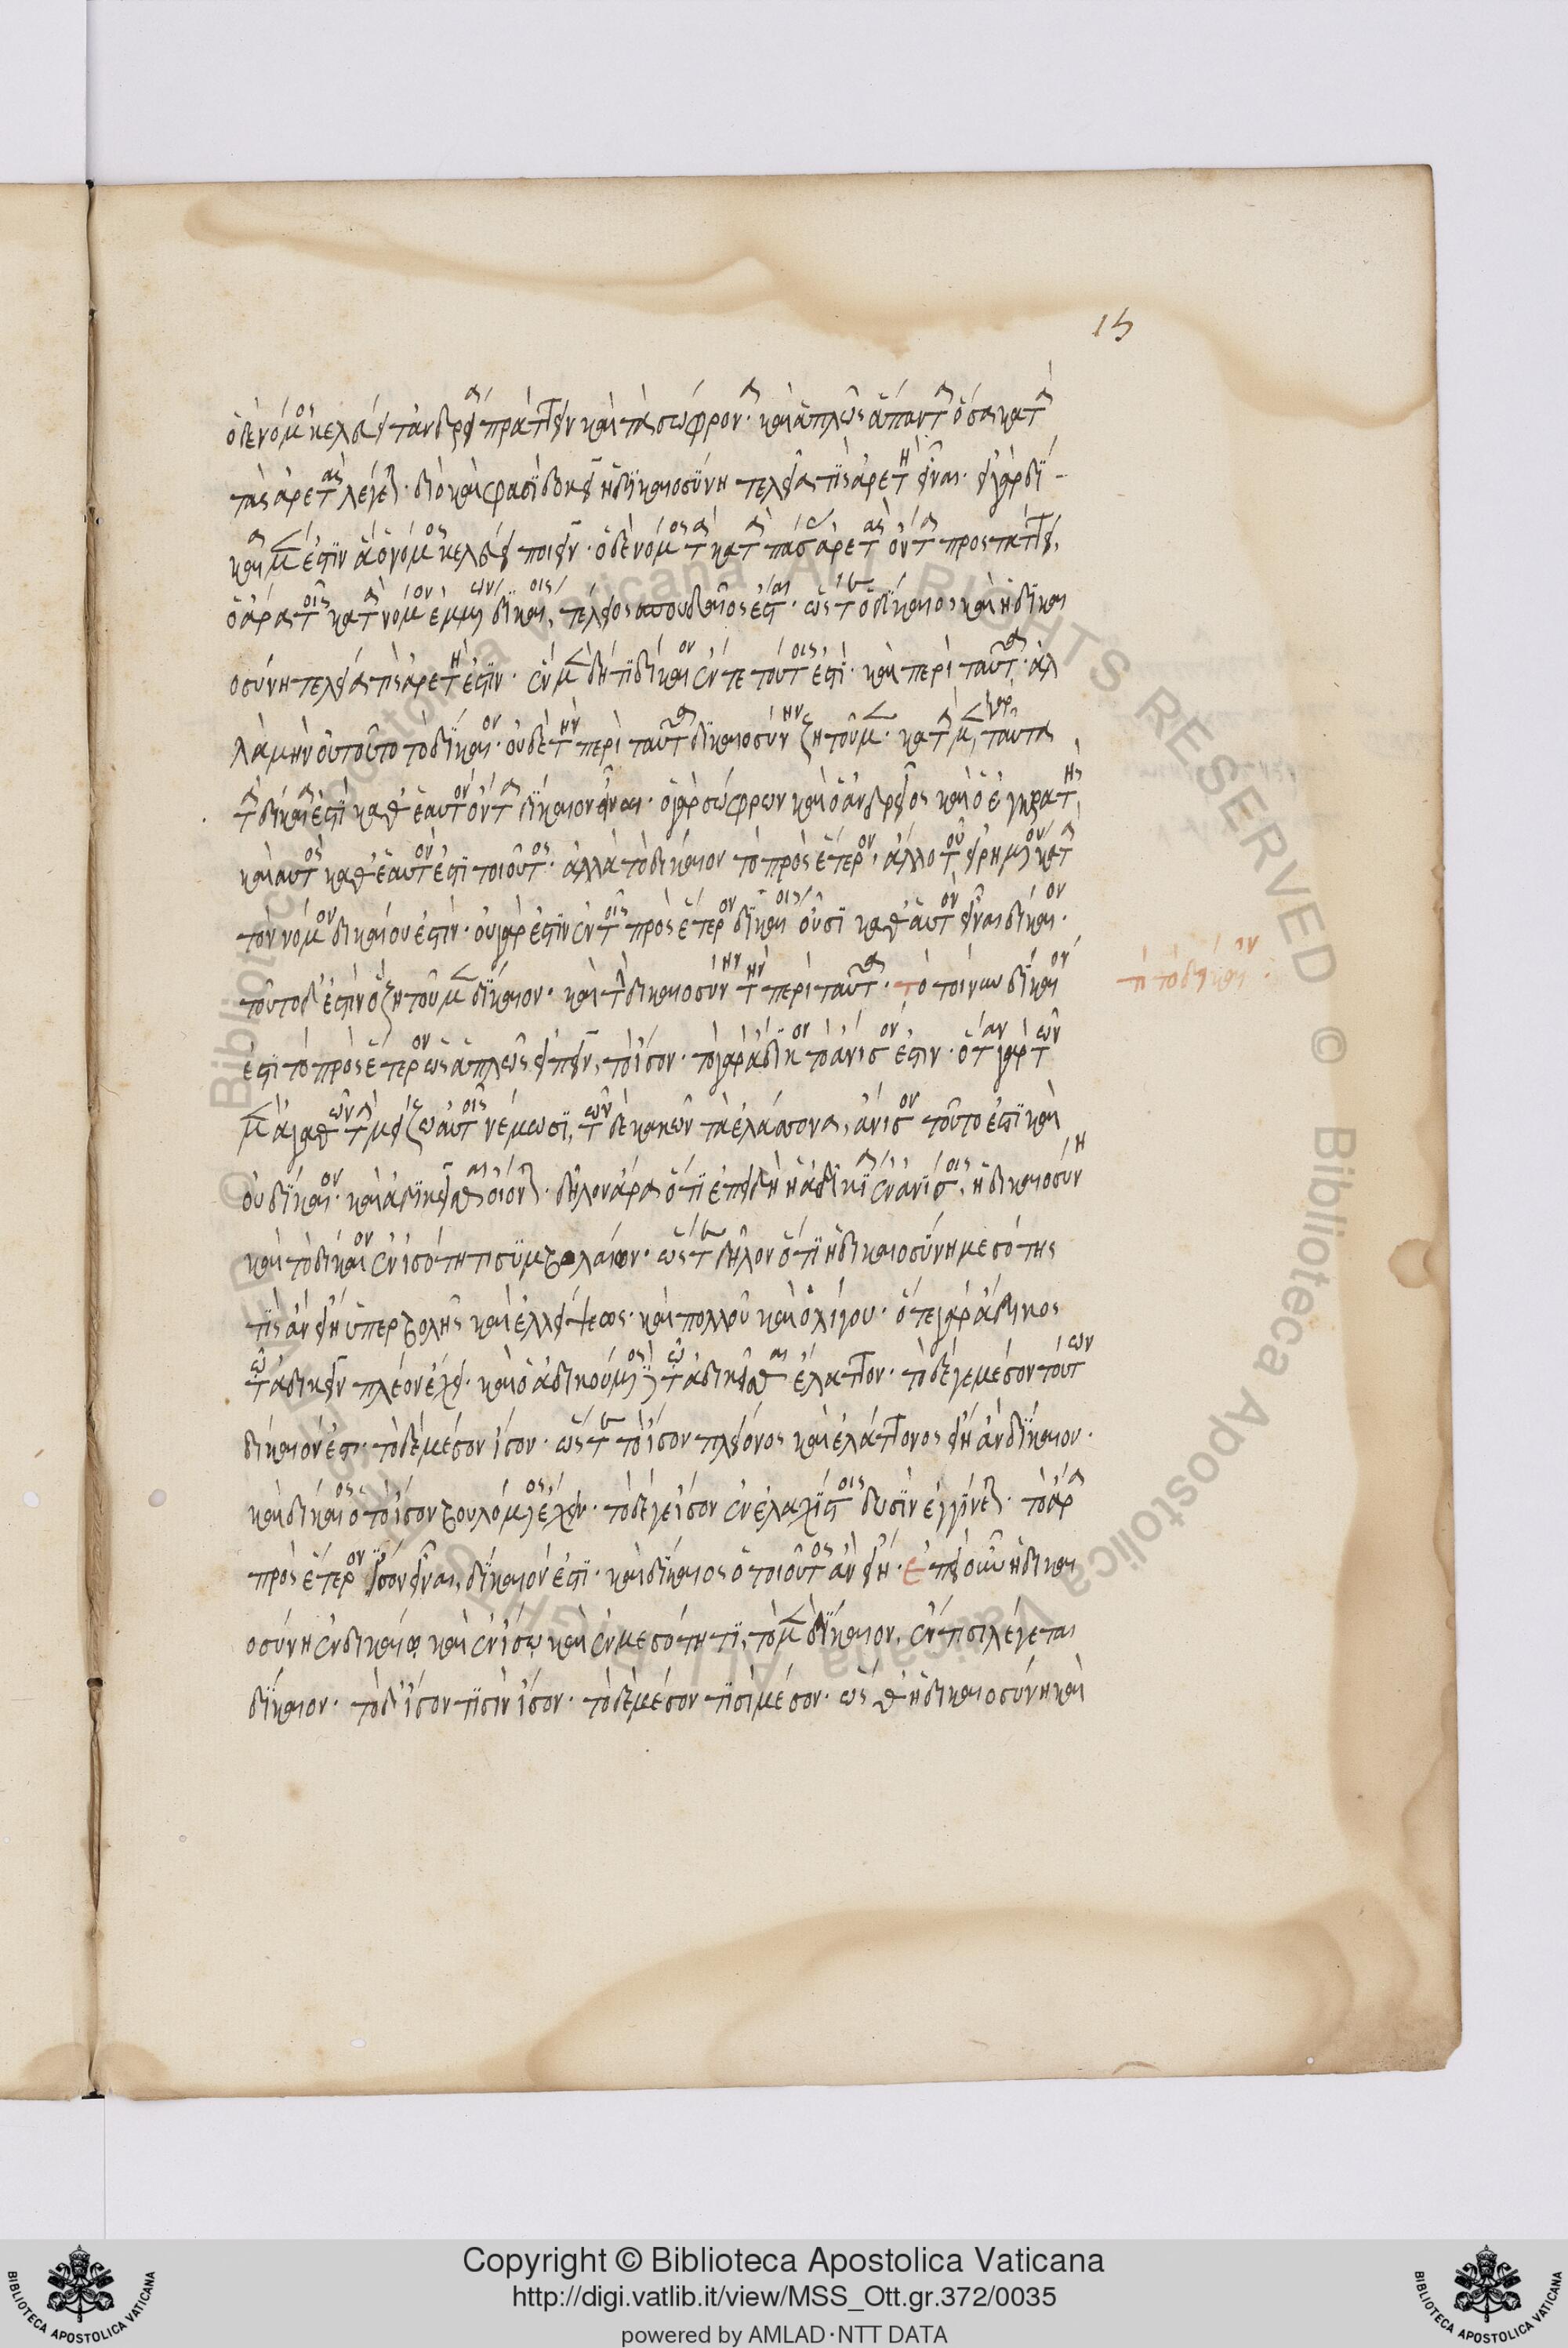 15
ὁ δὲ νόμος κελεύει τἀνδρεῖα πράττειν καὶ τὰ σώφρονα· καὶ ἁπλῶς ἅπαντα ὅσα κατὰ
τὰς ἀρετὰς λέγεται· διὸ καὶ φασὶ δοκεῖ ἡ δικαιοσύνη τελεία τις ἀρετὴ εἶναι· εἰ γὰρ δί-
καια μέν ἐστιν ἃ ὁ νόμος κελεύει ποιεῖν· ὁ δὲ νόμος τὰ κατὰ πάσας ἀρετὰς ὄντα προστάττει,
ὁ ἄρα τοῖς κατὰ νόμον ἐμμένων δικαίοις, τελείως σπουδαῖος ἔσται· ὥστε ὁ δίκαιος καὶ ἡ δικαι
οσύνη τελεία τις ἀρετή ἐστιν· ἓν μὲν δή τι δίκαιον ἔν τε τούτοις ἐστὶ· καὶ περὶ ταῦτα· ἀλ
λὰ μὴν οὐ τοῦτο τὸ δίκαιον· οὐδὲ τὴν περὶ ταῦτα δικαιοσύνην ζητοῦμεν· κατὰ μὲν γὰρ ταῦτα
τὰ δίκαιά ἐστι καθ' ἑαυτὸν ὄντα δίκαιον εἶναι· ὁ γὰρ σώφρων καὶ ὁ ἀνδρεῖος καὶ ὁ ἐγκρατὴς
καὶ αὐτὸς καθ' ἑαυτὸν ἐστι τοιοῦτος· ἀλλὰ τὸ δίκαιον τὸ πρὸς ἕτερον, ἄλλο τοῦ εἰρημένου κατὰ
τὸν νόμον δικαίου ἐστίν· οὐ γάρ ἐστιν ἐν τοῖς πρὸς ἕτερον δικαίοις οὖσι καθ' αὑτὸν εἶναι δίκαιον·
τοῦτο δ' ἐστὶν ὃ ζητοῦμεν δίκαιον· καὶ τὴν δικαιοσύνην τὴν περὶ ταῦτα· τὸ τοίνυν δίκαιον
τί τὸ δίκαιον·
ἐστὶ τὸ πρὸς ἕτερον ὡς ἁπλῶς εἰπεῖν, τὸ ἴσον· τὸ γὰρ ἄδικον τὸ ἄνισόν ἐστιν· ὅταν γὰρ τῶν
μὲν ἀγαθῶν τὰ μείζω αὑτοῖς νέμωσι, τῶν δὲ κακῶν τὰ ἐλάσσονα, ἄνισον τοῦτό ἐστι καὶ
οὐ δίκαιον· καὶ ἀδικεῖσθαι οἴονται· δῆλον ἄρα ὅτι ἐπειδὴ ἡ ἀδικία ἐν ἀνίσοις, ἡ δικαιοσύνη
καὶ τὸ δίκαιον ἐν ἰσότητι συμβολαίων· ὥστε δῆλον ὅτι ἡ δικαιοσύνη μεσότης
τις ἂν εἴη ὑπερβολῆς καὶ ἐλλείψεως· καὶ πολλοῦ καὶ ὀλίγου· ὅ τε γὰρ ἄδικος
τῷ ἀδικεῖν πλέον ἔχει· καὶ ὁ ἀδικούμενος τῷ ἀδικεῖσθαι ἔλαττον· τὸ δέ γε μέσον τούτων
δίκαιόν ἐστι· τὸ δὲ μέσον ἴσον· ὥστε τὸ ἴσον πλείονος καὶ ἐλάττονος εἴη ἂν δίκαιον·
καὶ δίκαιος ὁ τὸ ἴσον βουλόμενος ἔχειν· τὸ δέ γε ἴσον ἐν ἐλαχίστοις δυσὶν ἐγγίνεται· τὸ ἄρα
πρὸς ἕτερον ἴσον εἶναι, δίκαιόν ἐστι· καὶ δίκαιος ὁ τοιοῦτος ἂν εἴη· ἐπεὶ οὖν ἡ δικαι
οσύνη ἐν δικαίῳ καὶ ἐν ἴσῳ καὶ ἐν μεσότητι, τὸ μὲν δίκαιον, ἔν τισι λέγεται
δίκαιον· τὸ δ' ἴσον τισὶν ἴσον· τὸ δὲ μέσον τισὶ μέσον· ὥσθ' ἡ δικαιοσύνη καὶ
© Biblioteca Apostolica Vaticana ALL RIGHTS RESERVED
Copyright © Biblioteca Apostolica Vaticana
http://digi.vatlib.it/view/MSS_Ott.gr.372/0035
powered by AMLAD·NTT DATA
BIBLIOTECA APOSTOLICA VATICANA
BIBLIOTECA APOSTOLICA VATICANA